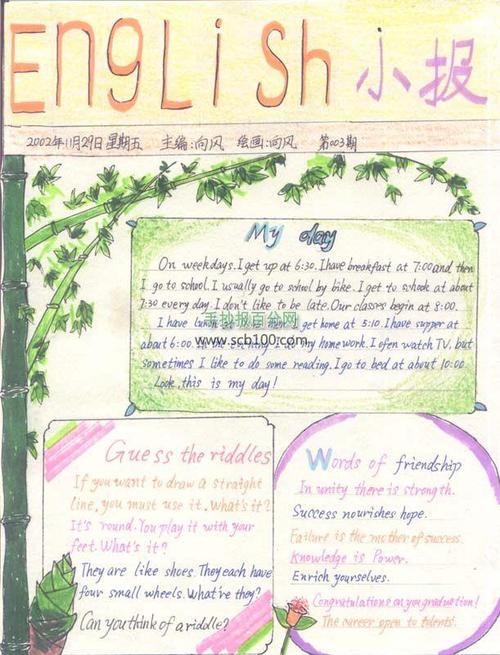 English 小报
2002年11月29日 星期五 主编:向风 绘画:向风 第003期
My day
On weekdays. I get up at 6:30. I have breakfast at 7:00 and then
I go to school. I usually go to school by bike. I get to school at about
7:30 every day. I don't like to be late. Our classes begin at 8:00.
I have lunch get home at 5:10. I have supper at
手抄报百分网
about 6:00. my homework. I ofen watch TV, but
www.scb100.com
sometimes I like to do some reading. I go to bed at about 10:00.
Look, this is my day!
Guess the riddles
If you want to draw a straight
line, you must use it. What's it?
It's round. You play it with your
feet. What's it?
They are like shoes. They each have
four small wheels. What're they?
Can you think of a riddle?
Words of friendship
In unity there is strength.
Success nourishes hope.
Failure is the mother of success.
Knowledge is Power.
Enrich yourselves.
Congratulations on you graduation!
The career open to talents.